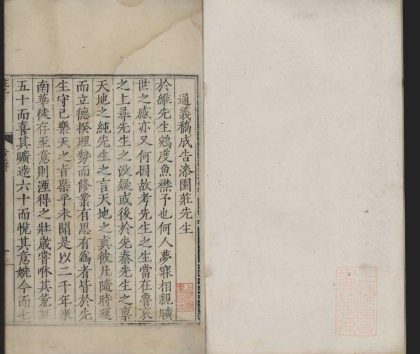 通義稿成告漆園莊先生
於維先生鵷度魚襟予也何人夢寐相親曠
世之感亦又何因故考先生之生當在魯哀
之上尋先生之沒疑或後於先秦先生之稟
天地之純先生之言天地之真彼凡隨時運
而立德揆理勢而修業有思有為者皆於先
生守已樂天之音槩乎未聞是以二千年來
南華徒存至意則湮得之壯歲嘗咻其荒
五十而喜其曠達六十而悅其意娓今而七